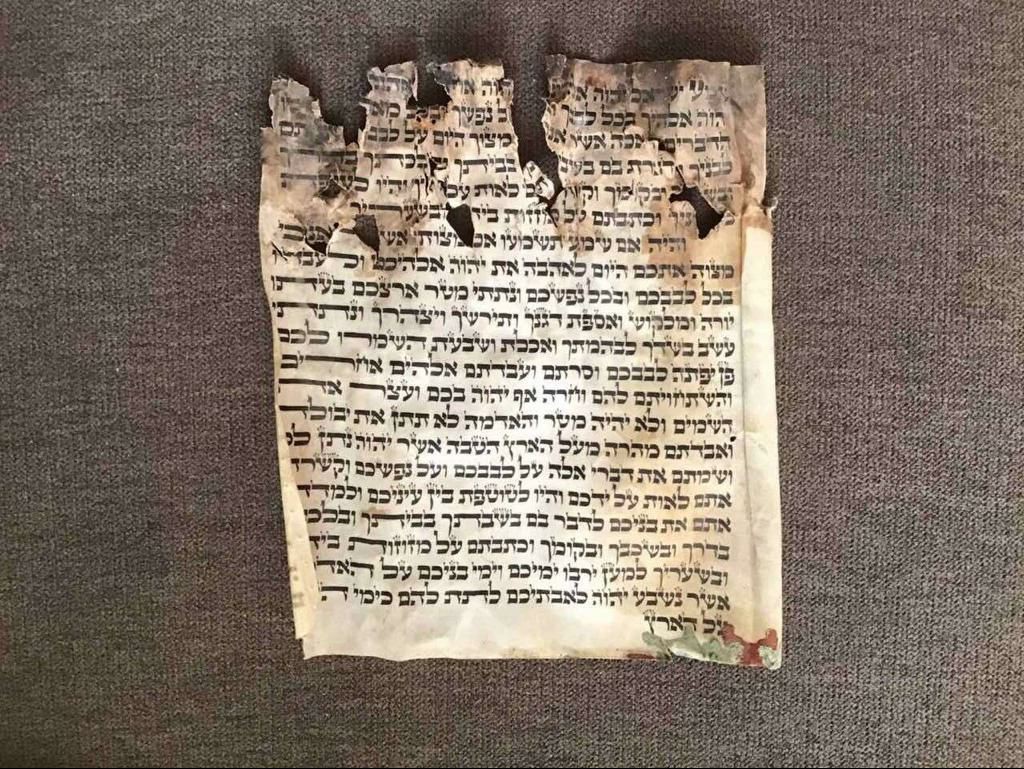 נפשך
אשר מצוך היום על
בם בביתך
לאות על והיו
וכתבתם על מזוזות
והיה אם שמע תשמעו אל מצותי
מצוה אתכם היום לאהבה את יהוה אלהיכם ולעבדו
בכל לבבכם ובכל נפשכם ונתתי מטר ארצכם בעתו
יורה ומלקוש ואספת דגנך ותירשך ויצהרך ונתתי
עשב בשדך לבהמתך ואכלת ושבעת השמרו לכם
פן יפתה לבבכם וסרתם ועבדתם אלהים אחרים
והשתחויתם להם וחרה אף יהוה בכם ועצר את
השמים ולא יהיה מטר והאדמה לא תתן את יבולה
ואבדתם מהרה מעל הארץ הטבה אשר יהוה נתן
ושמתם את דברי אלה על לבבכם ועל נפשכם
אתם לאות על ידכם והיו לטוטפת בין עיניכם
אתם את בניכם לדבר בם בשבתך בביתך
בדרך ובשכבך ובקומך וכתבתם על מזוזות
ובשעריך למען ירבו ימיכם וימי בניכם על
אשר נשבע יהוה לאבתיכם לתת להם כימי
על הארץ